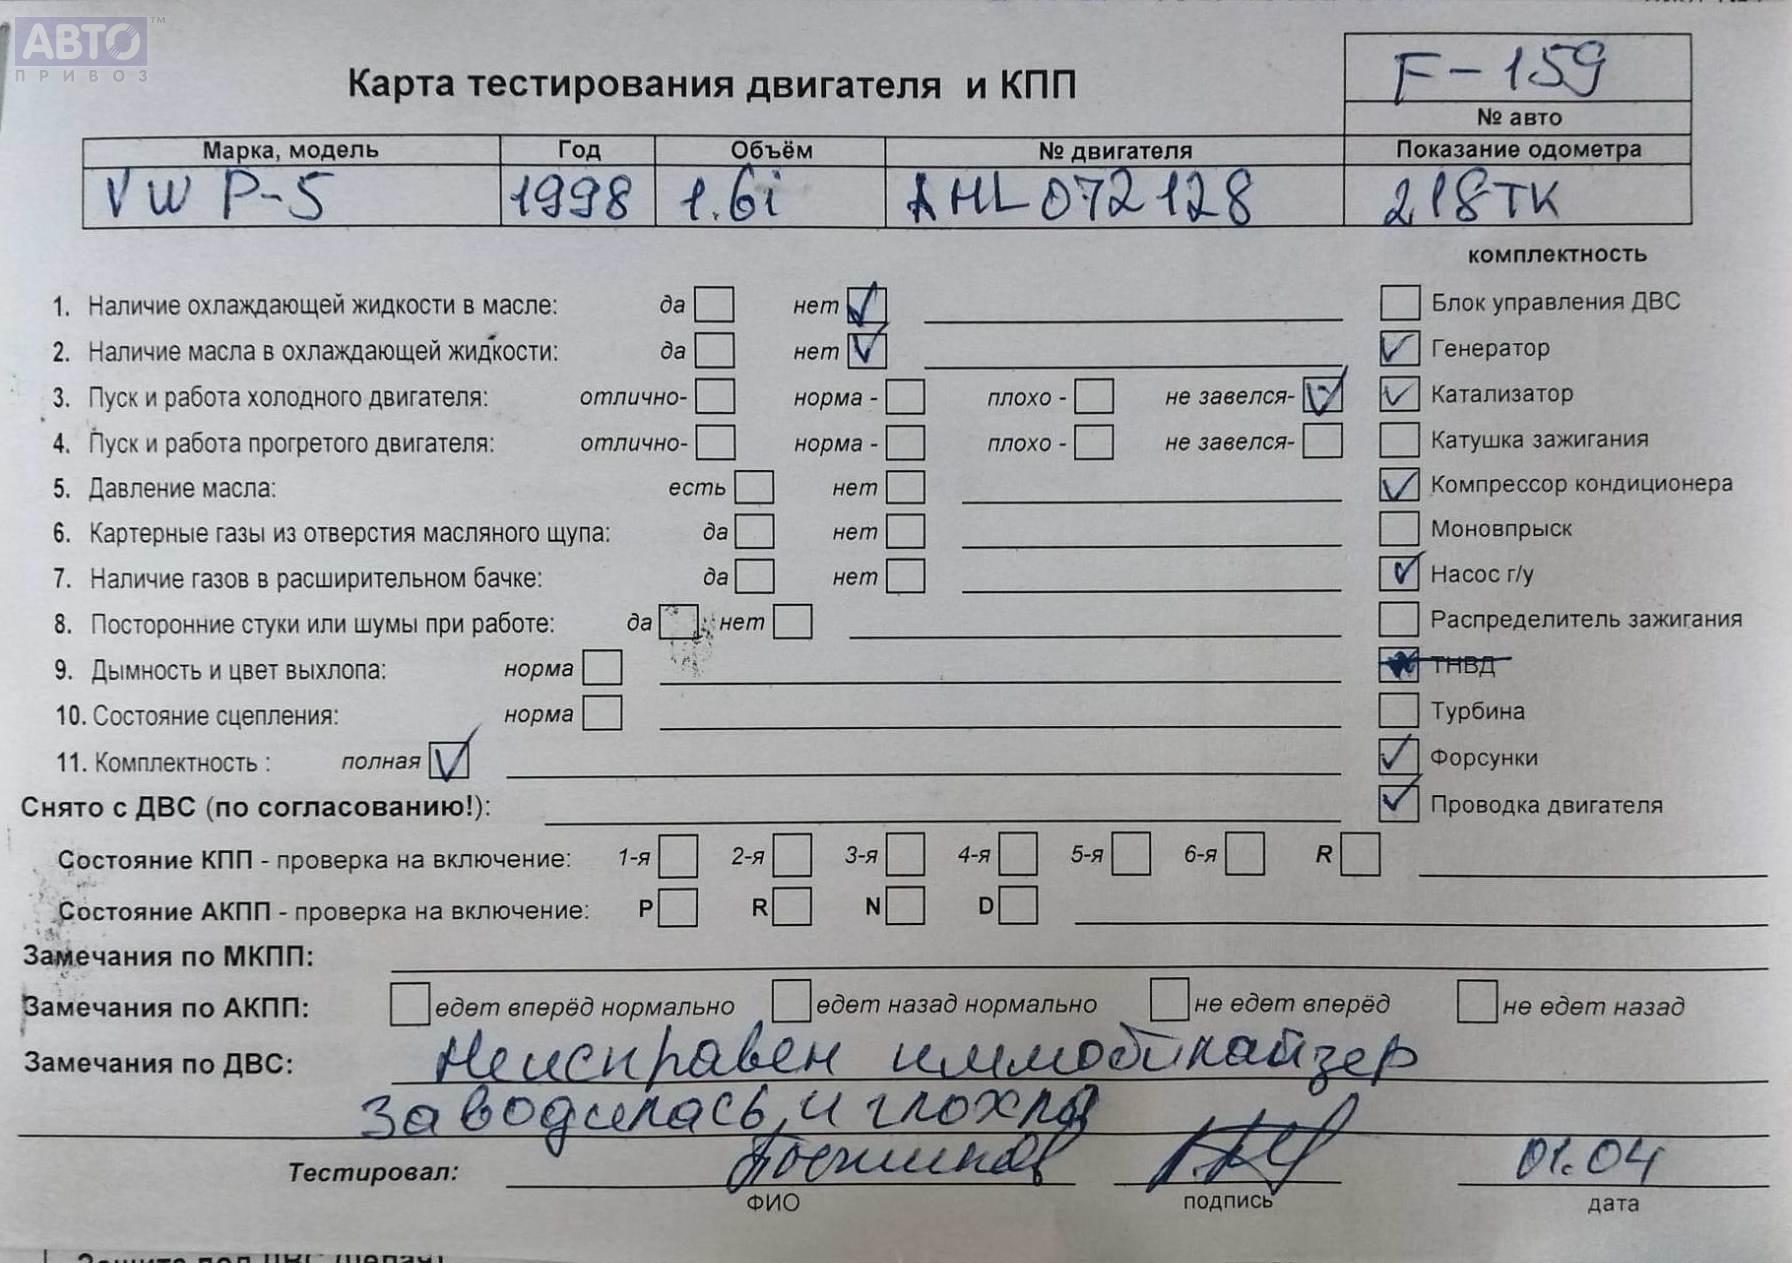 АВТО™
ПРИВОЗ
Карта тестирования двигателя и КПП
F-159
№ авто
Марка, модель Год Объём № двигателя Показание одометра
VW P-5 1998 1.6i AHL072128 218тк
комплектность
1. Наличие охлаждающей жидкости в масле: да нет Блок управления ДВС
2. Наличие масла в охлаждающей жидкости: да нет Генератор
3. Пуск и работа холодного двигателя: отлично- норма - плохо - не завелся- Катализатор
4. Пуск и работа прогретого двигателя: отлично- норма - плохо - не завелся- Катушка зажигания
5. Давление масла: есть нет Компрессор кондиционера
6. Картерные газы из отверстия масляного щупа: да нет Моновпрыск
7. Наличие газов в расширительном бачке: да нет Насос г/у
8. Посторонние стуки или шумы при работе: да нет Распределитель зажигания
9. Дымность и цвет выхлопа: норма ТНВД
10. Состояние сцепления: норма Турбина
11. Комплектность : полная Форсунки
Снято с ДВС (по согласованию!): Проводка двигателя
Состояние КПП - проверка на включение: 1-я 2-я 3-я 4-я 5-я 6-я R
Состояние АКПП - проверка на включение: P R N D
Замечания по МКПП:
Замечания по АКПП: едет вперёд нормально едет назад нормально не едет вперёд не едет назад
Замечания по ДВС: Неисправен иммобилайзер
Заводилась, и глохла
Тестировал: 01.04
ФИО подпись дата